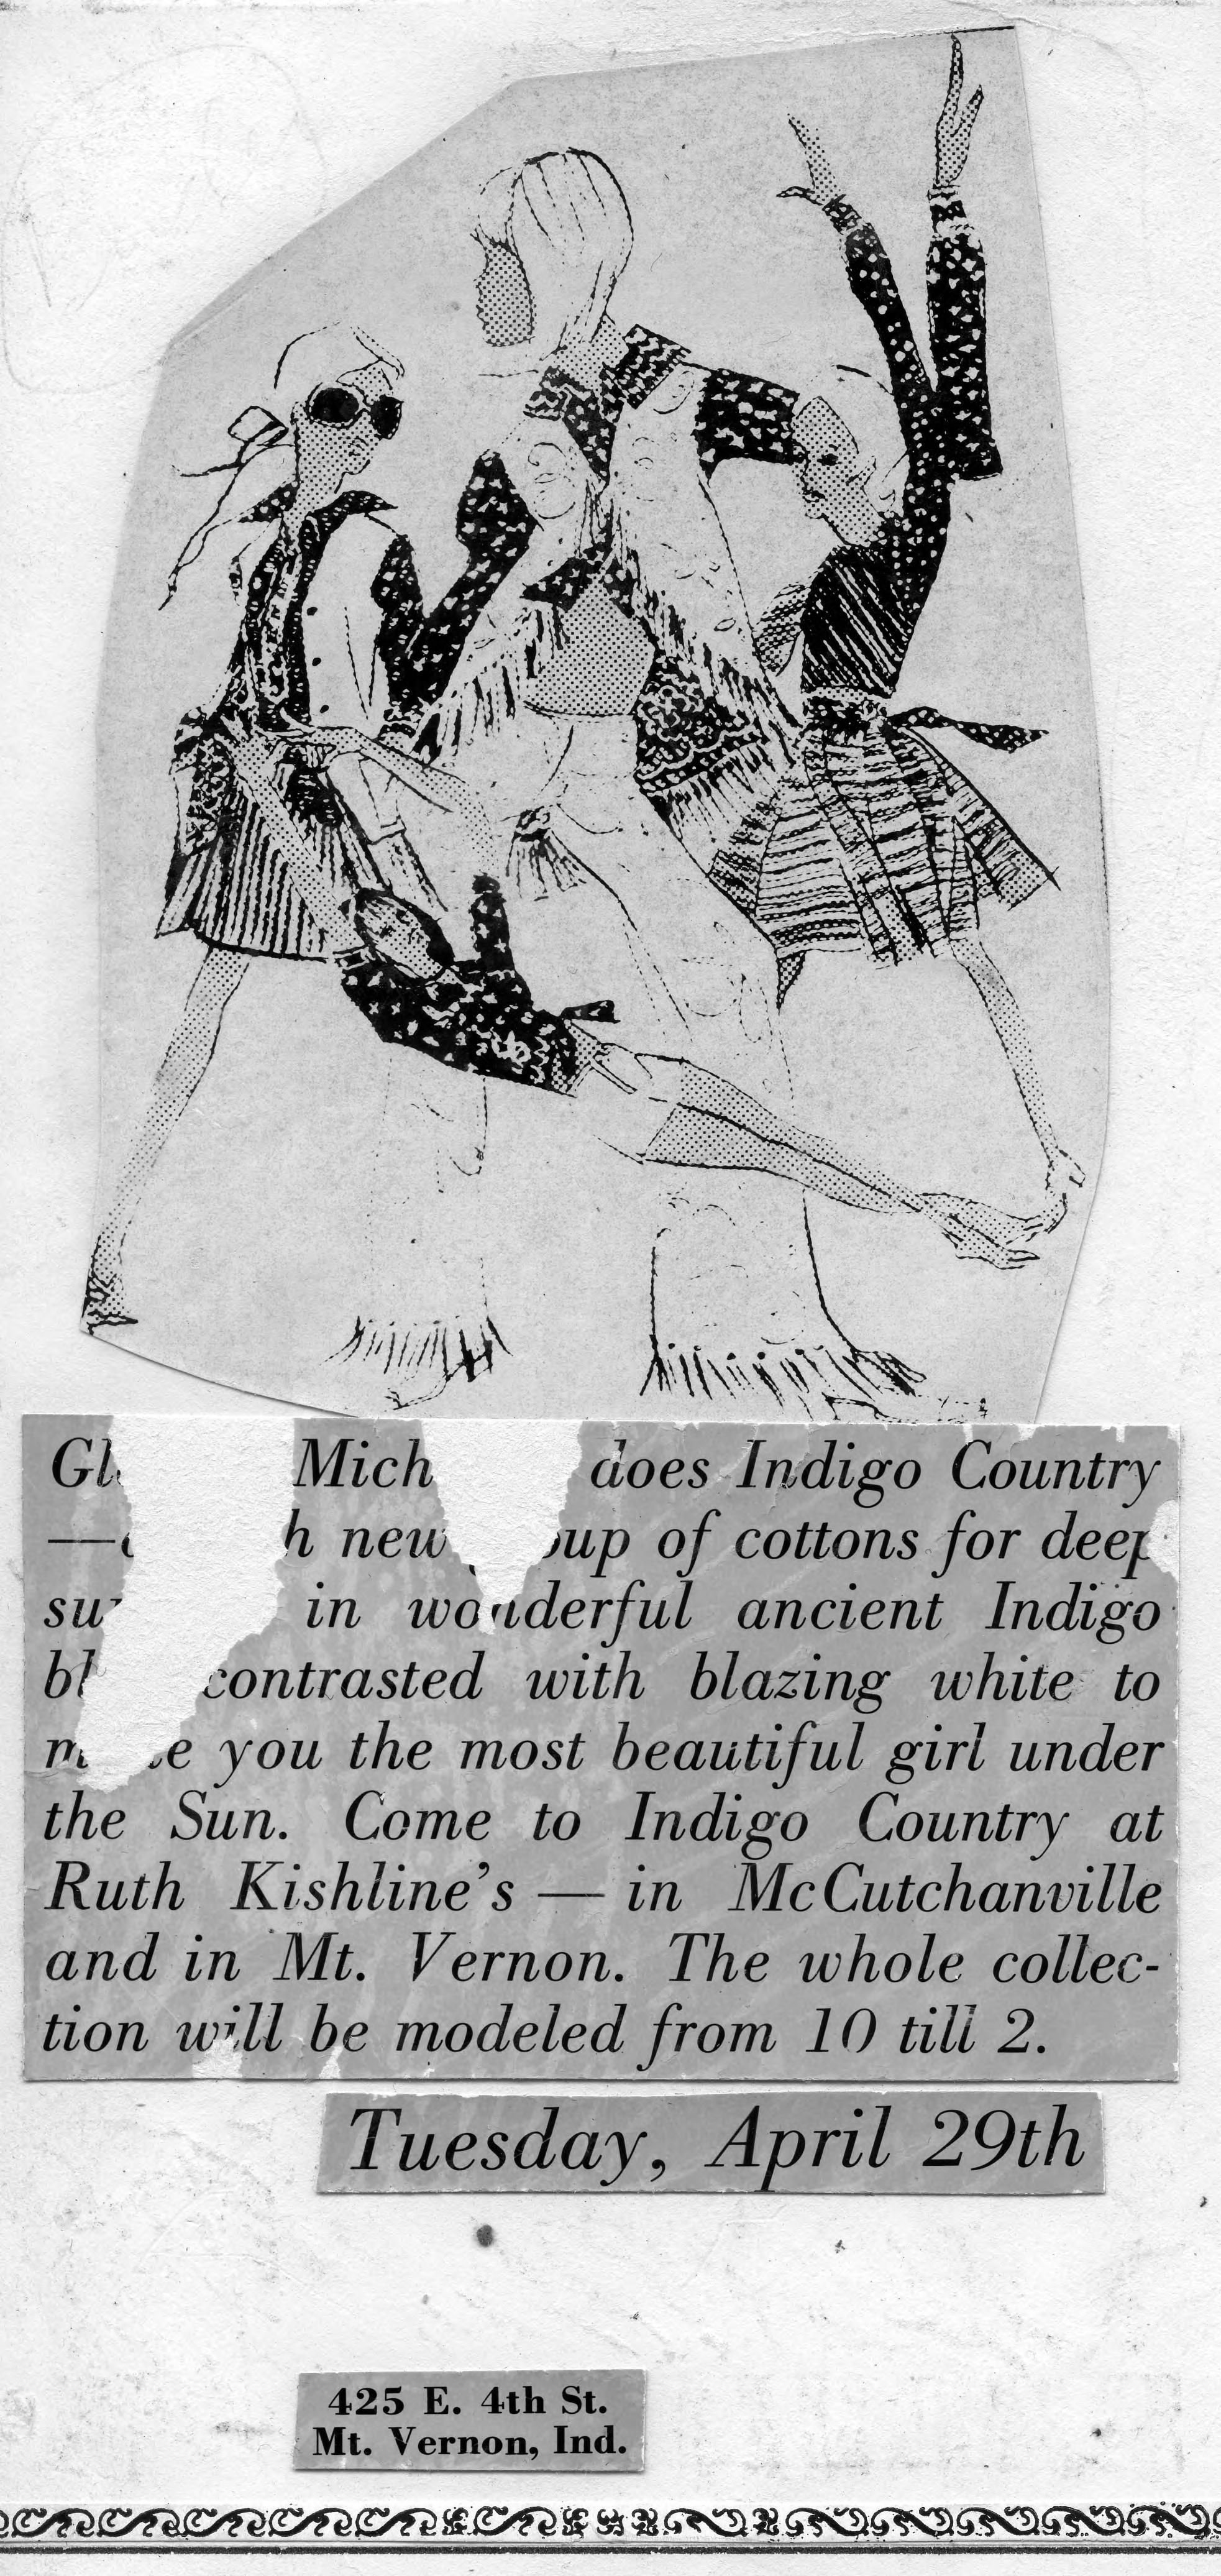 does Indigo Country
new of cottons for deep
in wonderful ancient Indigo
contrasted with blazing white to
you the most beautiful girl under
the Sun. Come to Indigo Country at
Ruth Kishline's — in McCutchanville
and in Mt. Vernon. The whole collec-
tion will be modeled from 10 till 2.
Tuesday, April 29th
425 E. 4th St.
Mt. Vernon, Ind.